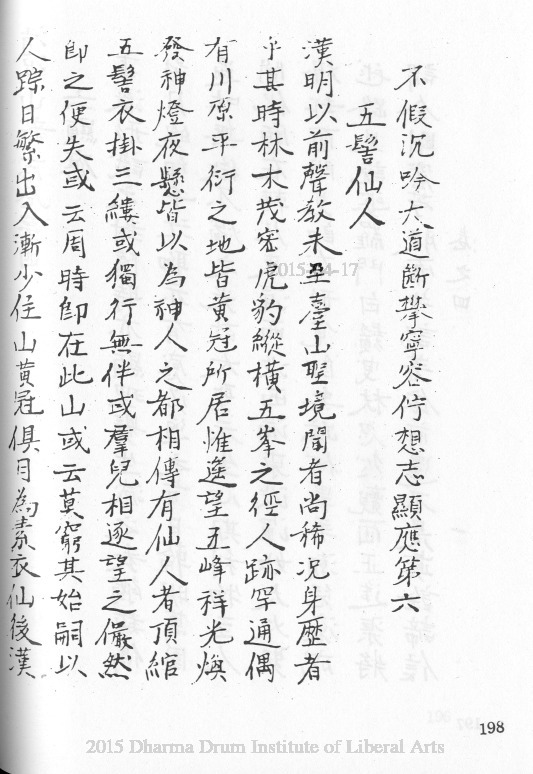 不假沉吟大道斷攀寧容佇想志顯應第六
五髻仙人
漢明以前聲教未至臺山聖境聞者尚稀况身歷者
乎其時林木茂密虎豹縱橫五峯之徑人跡罕通偶
有川原平衍之地皆黃冠所居惟遙望五峰祥光煥
發神燈夜懸皆以為神人之都相傳有仙人者頂綰
五髻衣掛三縷或獨行無伴或羣兒相逐望之儼然
即之便失或云周時即在此山或云莫窮其始嗣以
人踪日繁出入漸少住山黃冠俱目為素衣仙後漢
198
2015-04-17
2015 Dharma Drum Institute of Liberal Arts